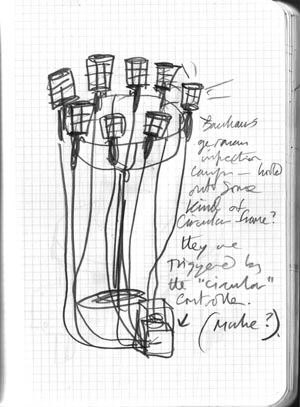 Bauhaus
german
inspection
lamps – held
onto some
kind of
Circular frame?
they are
triggered by
the "circular"
controller.
(Make?).